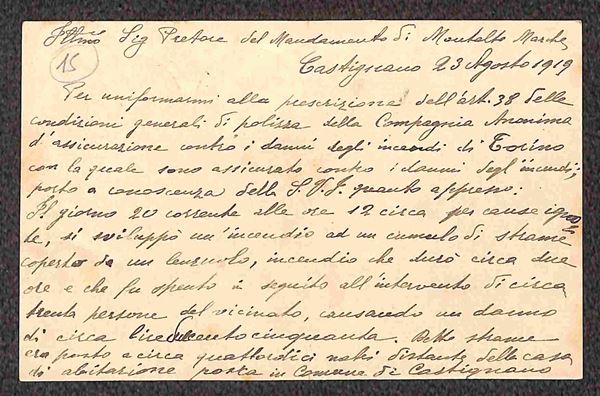 Ill.mo Sig Pretore del Mandamento di Montalto Marche
15
Castignano 23 Agosto 1919
Per uniformarmi alla prescrizione dell'art. 38 delle
condizioni generali di polizza della Compagnia Anonima
d'assicurazione contro i danni degli incendi di Torino
con la quale sono assicurato contro i danni degl'incendi,
porto a conoscenza della S.V.I. quanto appresso:
Il giorno 20 corrente alle ore 12 circa per cause igno-
te, si sviluppò un'incendio ad un cumulo di strame
coperto da un incendio che durò circa due
ore e che fu spento in seguito all'intervento di circa
trenta persone del vicinato, causando un danno
di circa lire Detto strame
era posto a circa quattordici metri distante dalla casa
di abitazione posta in Comune di Castignano